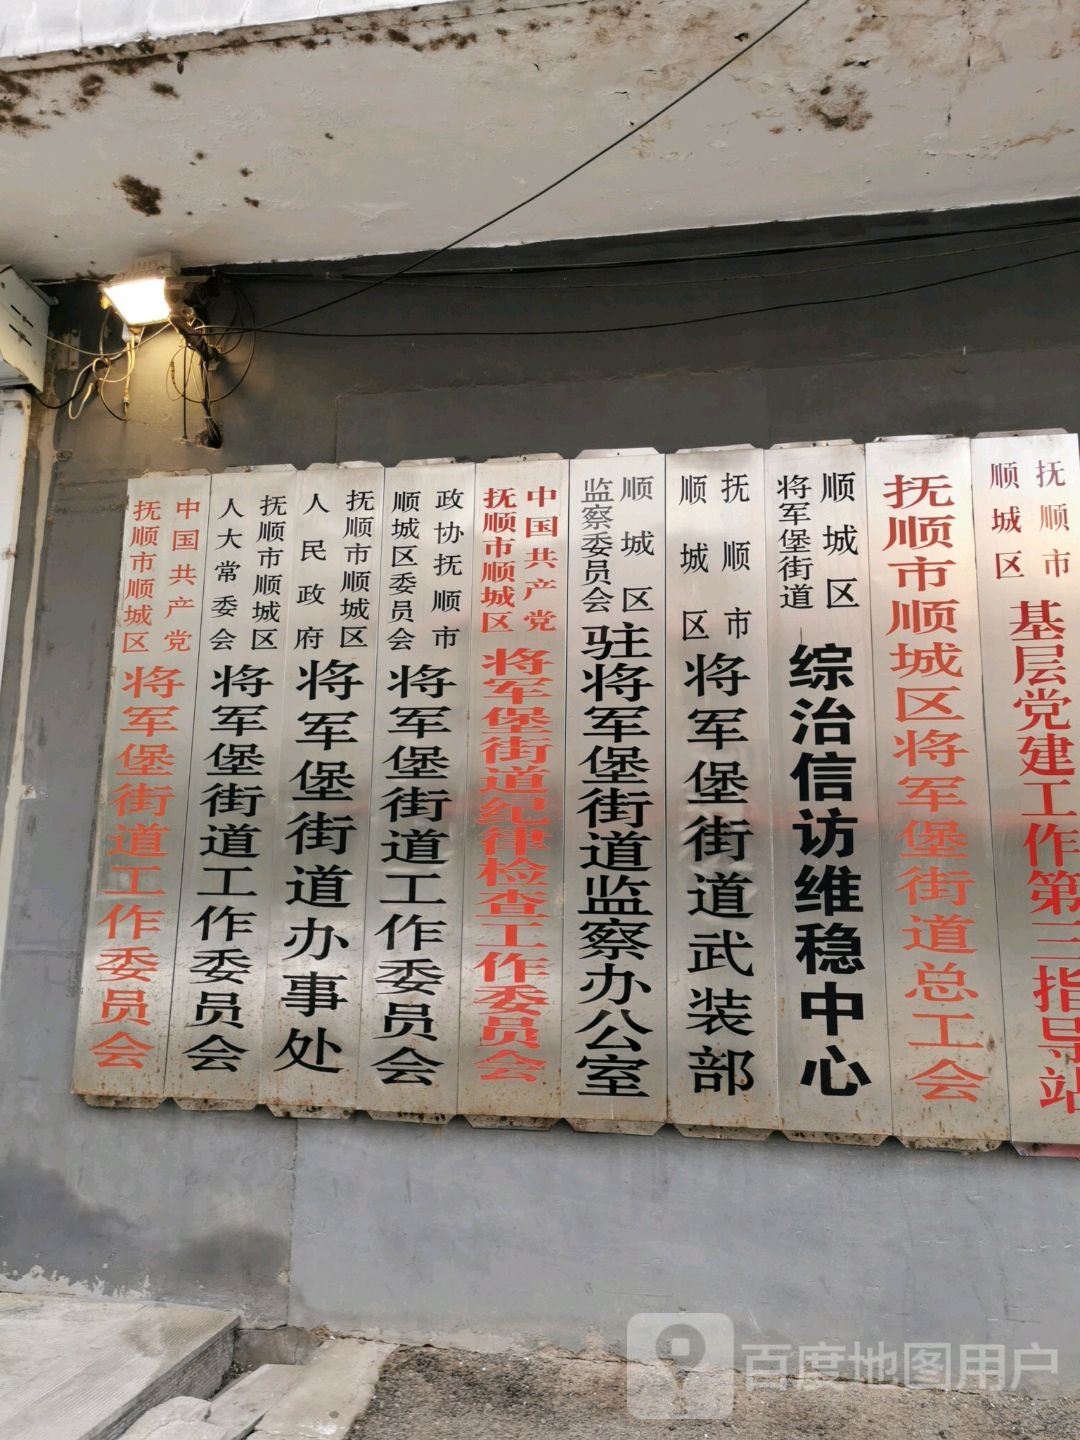 中国共产党
抚顺市顺城区
将军堡街道工作委员会
抚顺市顺城区
人大常委会
将军堡街道工作委员会
抚顺市顺城区
人民政府
将军堡街道办事处
政协抚顺市
顺城区委员会
将军堡街道工作委员会
中国共产党
抚顺市顺城区
将军堡街道纪律检查工作委员会
顺城区
监察委员会
驻将军堡街道监察办公室
抚顺市
顺城区
将军堡街道武装部
顺城区
将军堡街道
综治信访维稳中心
抚顺市顺城区将军堡街道总工会
抚顺市
顺城区
基层党建工作第三指导站
百度地图用户